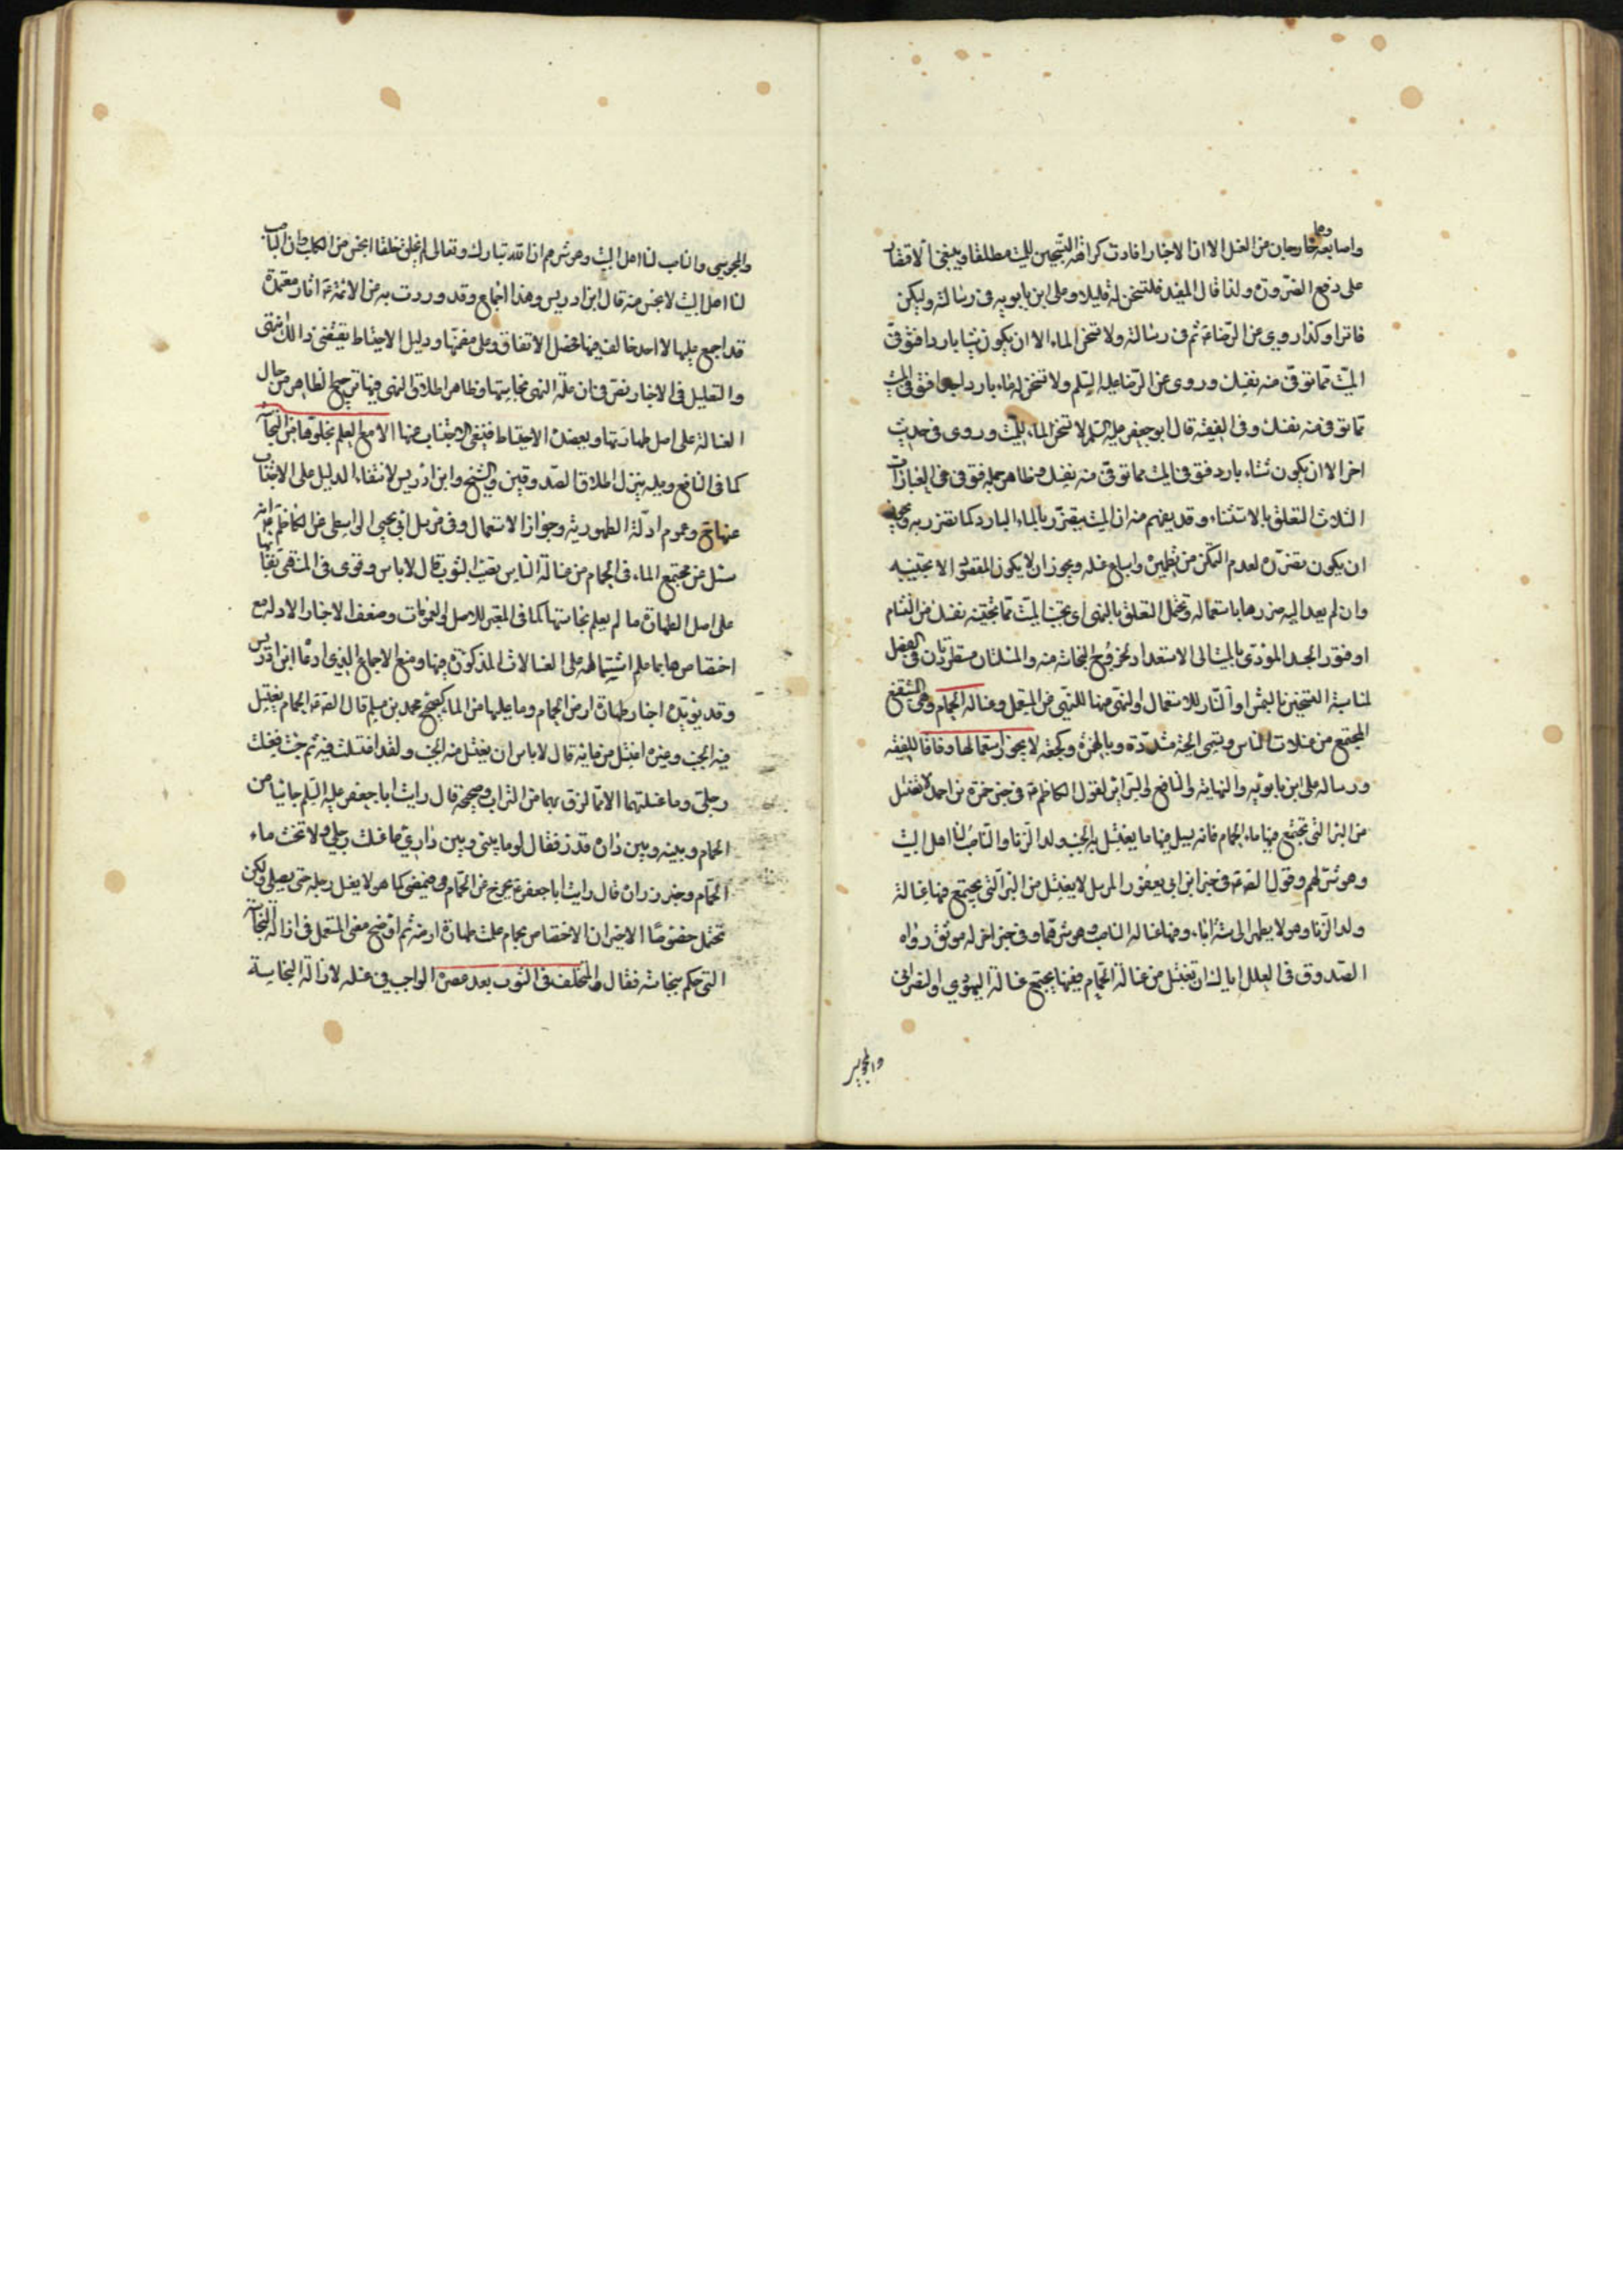 وهما
واصابعه خارجان من الغسل الا ان الاخبار افادت كراهة التسخين للميت مطلقا وينبغي الاقتصار
على دفع الضرورة ولذا قال المفيد فليسخن له قليلا وعلى ابن بابويه في رسالته وليكن
فاترا وكذا روي عن الرضا ع ثم في رسالته ولا تسخن الماء الا ان يكون شتاء باردا فتوقى
الميت مما توقى منه نفسك وروى عن الرضا عليه السلم ولا تسخن له ماء باردا فتوقى الميت
مما توقى منه نفسك وفى الفقيه قال ابو جعفر عليه السلم لا تسخن الماء للميت وروى في حديث
اخر الا ان يكون شتاء باردا فتوقى الميت مما توقى منه نفسك فظاهر جملة فتوقى في العبارات
الثلاث التعلق بالاستثناء وقد يفهم منه ان الميت يتضرر بالماء البارد كما نتضرر به ويجوز
ان يكون تضرره لعدم التمكن من تطهيره واسباغ غسله ويجوز ان لا يكون المقصود الا تجنيبه
وان لم يعد اليه ضررها باستعماله وتحتمل التعلق بالنهى اى تجنب الميت مما تجنبه نفسك من
او فتور الجسد المؤدى بالميت الى الاستعداد لخروج النجاسة منه والمسئلتان مستطردتان في الفصل
لمناسبة التسخين بالشمس او النار للاستعمال او النهى هنا للنهى عن المستعمل وغسالة الحمام وهي المستنقع
المجتمع من غسلات الناس وتسمى الجيئة مشددة وبالهمزة وكجعة لا يجوز استعمالها وفاقا للفقيه
ورسالة على ابن بابويه والنهاية والنافع والسرائر لقول الكاظم ع في خبر حمزة بن احمد لا تغتسل
من البئر التى تجتمع فيها ماء الحمام فانه يسيل فيها ما يغتسل به الجنب وولد الزنا والناصب لنا اهل البيت
وهو شرهم وقول الص ع في خبر ابن ابى يعفور المرسل لا يغتسل من البئر التى يجتمع فيها غسالة
ولد الزنا وهو لا يطهر الى ستة اباء وفيها غسالة الناصب وهو شرهما وفى خبر اخر له موثق رواه
الصدوق في العلل اياك ان تغتسل من غسالة الحمام ففيها يجتمع غسالة اليهودي والنصرانى
والمجوسي
والمجوسي والناصب لنا اهل البيت وهو شرهم ان الله تبارك وتعالى لم يخلق خلقا انجس من الكلب وان الناصب
لنا اهل البيت لانجس منه قال ابن ادريس وهذا اجماع وقد وردت به عن الائمة ع اثار معتمدة
قد اجمع عليها لا احد خالف فيها فحصل الاتفاق وعلى مضمنها ودليل الاحتياط يقتضى ذالك انتهى
والتعليل في الاخبار نص في ان علة النهى نجاستها وظاهر اطلاق النهى فيها ترجيح الظاهر من حال
الغسالة على اصل طهارتها ويعضده الاحتياط فينبغي الاجتناب عنها الا مع العلم بخلوها من النجاسة
كما في النافع وعليه ينزل اطلاق الصدوقين والشيخ وابن ادريس لانتفاء الدليل على الاجتناب
عنها ح وعموم ادلة الطهورية وجواز الاستعمال وفى مرسل ابي يحيى الواسطى عن الكاظم ع انه
سئل عن مجتمع الماء في الحمام من غسالة الناس يصيب الثوب قال لا باس وقوى في المنتهى بقاءها
على اصل الطهارة ما لم يعلم نجاستها كما في المعتبر للاصل والعمومات وضعف الاخبار الاوله مع
اختصاصها بما علم اشتماله على الغسالات المذكورة فيها ومنع الاجماع الذي ادعاه ابن ادريس
وقد يؤيده اخبار طهارة ارض الحمام وما عليها من الماء كصحيح محمد بن مسلم قال للص ع الحمام يغتسل
فيه الجنب وغيره اغتسل من مائه قال لا باس ان يغتسل منه الجنب ولقد اغتسلت فيه ثم جئت فغسلت
رجلي وما غسلتهما الا مما لزق بهما من التراب وصحيحه قال رايت ابا جعفر عليه السلم جائيا من
الحمام وبينه وبين داره قذر فقال لولا ما بيني وبين داري ما غسلت رجلي ولا تخت ماء
الحمام وخبر زرارة قال رايت ابا جعفر ع يخرج من الحمام فيمضى كما هو لا يغسل رجله حتى يصلى ولكن
تحتمل خصوصا الاخيران الاختصاص بحمام علمت طهارة ارضه ثم اوضح معنى المستعمل في ازالة النجاسة
التى حكم بنجاسته فقال والمتخلف في الثوب بعد عصره الواجب في غسله لازالة النجاسة